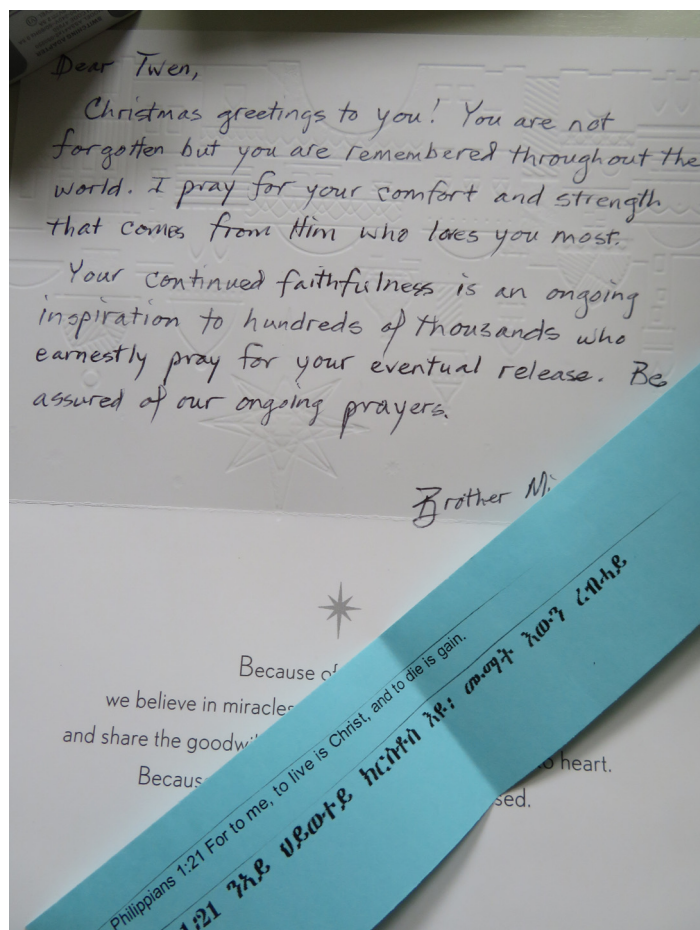 Dear Twen,
Christmas greetings to you! You are not
forgotten but you are remembered throughout the
world. I pray for your comfort and strength
that comes from Him who loves you most.
Your continued faithfulness is an ongoing
inspiration to hundreds of thousands who
earnestly pray for your eventual release. Be
assured of our ongoing prayers.
Brother
Because of
we believe in miracles
and share the goodwi
Becaus
heart.
sed.
Philippians 1:21 For to me, to live is Christ, and to die is gain.
1:21 ንእይ ህይወተይ ክርስቶስ እዩ፡ መማት እውን ረብሓይ